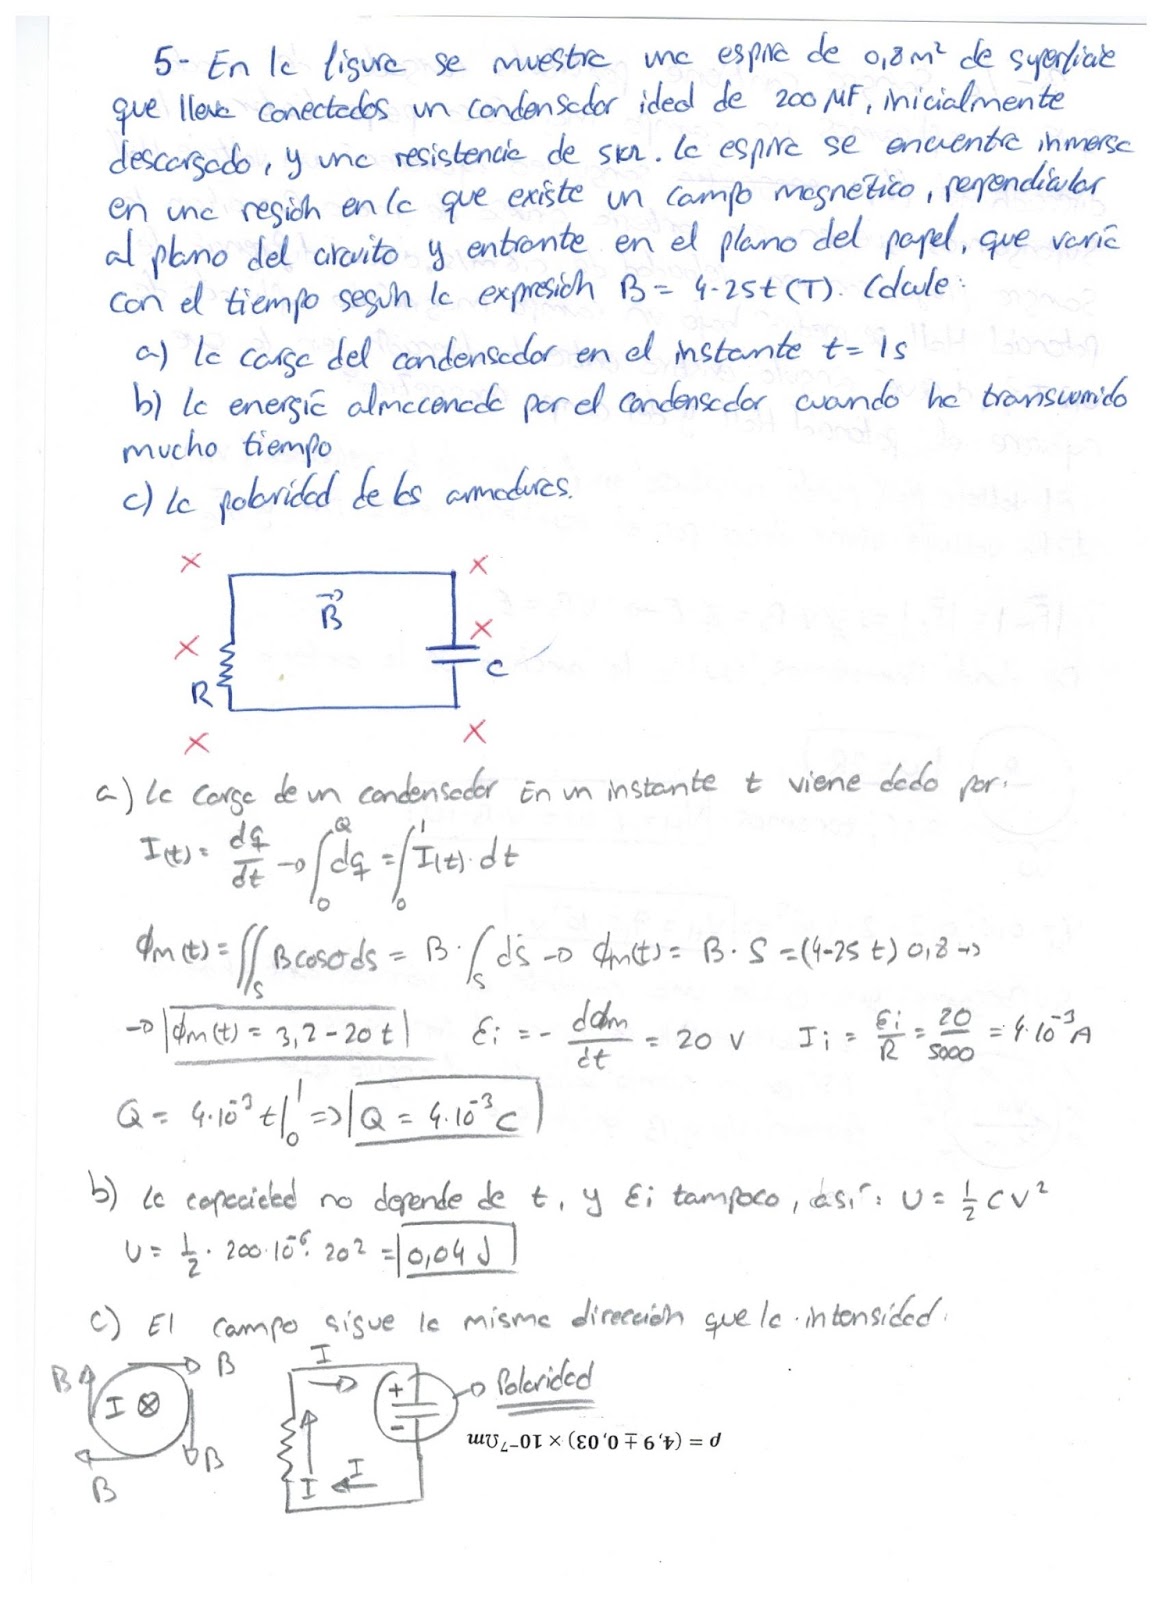 5- En la figura se muestra una espira de 0,8m² de superficie
que lleva conectados un condensador ideal de 200 µF, inicialmente
descargado, y una resistencia de 5kΩ. La espira se encuentra inmersa
en una región en la que existe un campo magnético, perpendicular
al plano del circuito y entrante en el plano del papel, que varía
con el tiempo según la expresión B = 4-25t (T). Calcule:
a) la carga del condensador en el instante t = 1s
b) la energía almacenada por el condensador cuando ha transcurrido
mucho tiempo
c) la polaridad de las armaduras.
x x
B⃗
x x
R C
x x
a) La carga de un condensador En un instante t viene dado por:
I(t) = dq/dt → ∫₀^Q dq = ∫₀^1 I(t)·dt
ϕm(t) = ∬_S B cosσ ds = B · ∫_S ds → ϕm(t) = B · S = (4-25 t) 0,8 →
→ ϕm(t) = 3,2 - 20 t    Ɛi = - dϕm/dt = 20 V    Ii = Ɛi/R = 20/5000 = 4·10⁻³ A
Q = 4·10⁻³ t|₀^1 => Q = 4·10⁻³ C
b) La capacidad no depende de t, y Ɛi tampoco, así: U = ½ C V²
U = ½ · 200·10⁻⁶ · 20² = 0,04 J
c) El campo sigue la misma dirección que la intensidad.
B B I
I ⊗ + → Polaridad
-
B I I
B
ρ = (4,9 ∓ 0,03) × 10⁻⁷Ωm